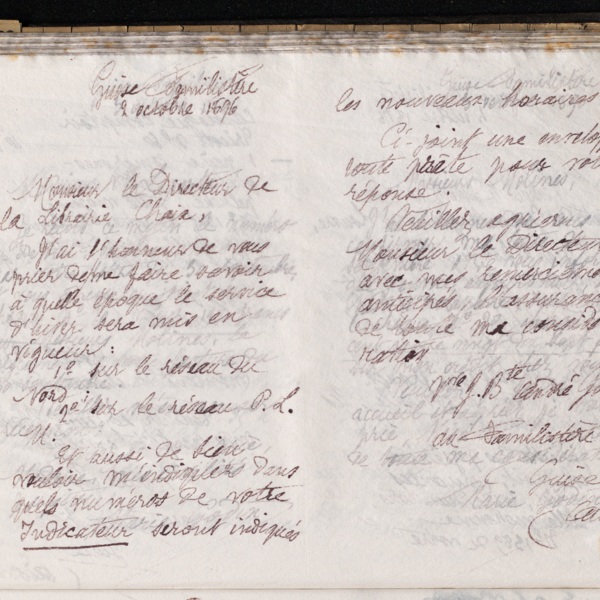 Guise Familistère
2 octobre 1896
Monsieur le Directeur de
la Librairie Chaix,
J'ai l'honneur de vous
prier de me faire savoir
à quelle époque le service
d'hiver sera mis en
vigueur:
1º sur le réseau du
Nord
2º sur le réseau P. L.
M.
Et aussi de bien
vouloir m'indiquer dans
quels numéros de votre
Indicateur seront indiqués
les nouveaux horaires
Ci-joint une envelop
toute prête pour vo
réponse.
Veuillez agréer
Monsieur le Directeu
avec mes remerciem
anticipés l'assuranc
de toute ma considé
ration
Vve J. Bte André G
au Familistère
Guise